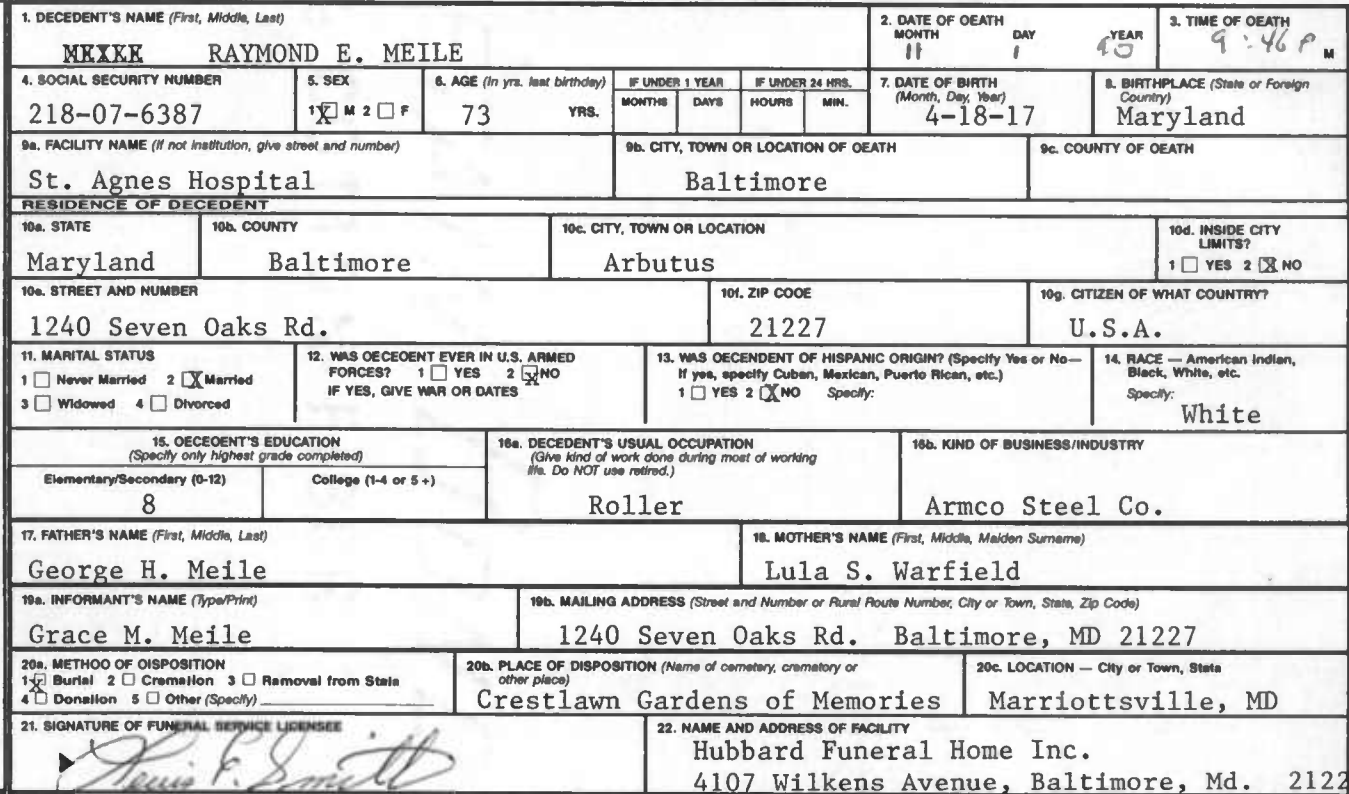 1. DECEDENT'S NAME (First, Middle, Last)
RAYMOND E. MEILE
2. DATE OF OEATH
MONTH DAY YEAR
11 1 90
3. TIME OF OEATH
9:46 P M
4. SOCIAL SECURITY NUMBER
218-07-6387
5. SEX
1 X M 2 ☐ F
6. AGE (In yrs. last birthday)
73 YRS.
IF UNDER 1 YEAR
MONTHS DAYS
IF UNDER 24 HRS.
HOURS MIN.
7. DATE OF BIRTH
(Month, Day, Year)
4-18-17
8. BIRTHPLACE (State or Foreign
Country)
Maryland
9a. FACILITY NAME (If not institution, give street and number)
St. Agnes Hospital
9b. CITY, TOWN OR LOCATION OF OEATH
Baltimore
9c. COUNTY OF OEATH
RESIDENCE OF DECEDENT
10a. STATE
Maryland
10b. COUNTY
Baltimore
10c. CITY, TOWN OR LOCATION
Arbutus
10d. INSIDE CITY
LIMITS?
1 ☐ YES 2 X NO
10e. STREET AND NUMBER
1240 Seven Oaks Rd.
10f. ZIP COOE
21227
10g. CITIZEN OF WHAT COUNTRY?
U.S.A.
11. MARITAL STATUS
1 ☐ Never Married 2 X Married
3 ☐ Widowed 4 ☐ Divorced
12. WAS OECEOENT EVER IN U.S. ARMED
FORCES? 1 ☐ YES 2 X NO
IF YES, GIVE WAR OR DATES
13. WAS OECENDENT OF HISPANIC ORIGIN? (Specify Yes or No—
If yes, specify Cuban, Mexican, Puerto Rican, etc.)
1 ☐ YES 2 X NO Specify:
14. RACE — American Indian,
Black, White, etc.
Specify:
White
15. OECEOENT'S EDUCATION
(Specify only highest grade completed)
Elementary/Secondary (0-12) College (1-4 or 5 +)
8
16a. DECEDENT'S USUAL OCCUPATION
(Give kind of work done during most of working
life. Do NOT use retired.)
Roller
16b. KIND OF BUSINESS/INDUSTRY
Armco Steel Co.
17. FATHER'S NAME (First, Middle, Last)
George H. Meile
18. MOTHER'S NAME (First, Middle, Maiden Surname)
Lula S. Warfield
19a. INFORMANT'S NAME (Type/Print)
Grace M. Meile
19b. MAILING ADDRESS (Street and Number or Rural Route Number, City or Town, State, Zip Code)
1240 Seven Oaks Rd. Baltimore, MD 21227
20a. METHOO OF OISPOSITION
1 X Burial 2 ☐ Cremation 3 ☐ Ramoval from Stata
4 ☐ Donation 5 ☐ Other (Specify)
20b. PLACE OF DISPOSITION (Name of cemetery, crematory or
other place)
Crestlawn Gardens of Memories
20c. LOCATION — City or Town, Stata
Marriottsville, MD
21. SIGNATURE OF FUNERAL SERVICE LICENSEE
F. Smith
22. NAME AND ADDRESS OF FACILITY
Hubbard Funeral Home Inc.
4107 Wilkens Avenue, Baltimore, Md. 2122